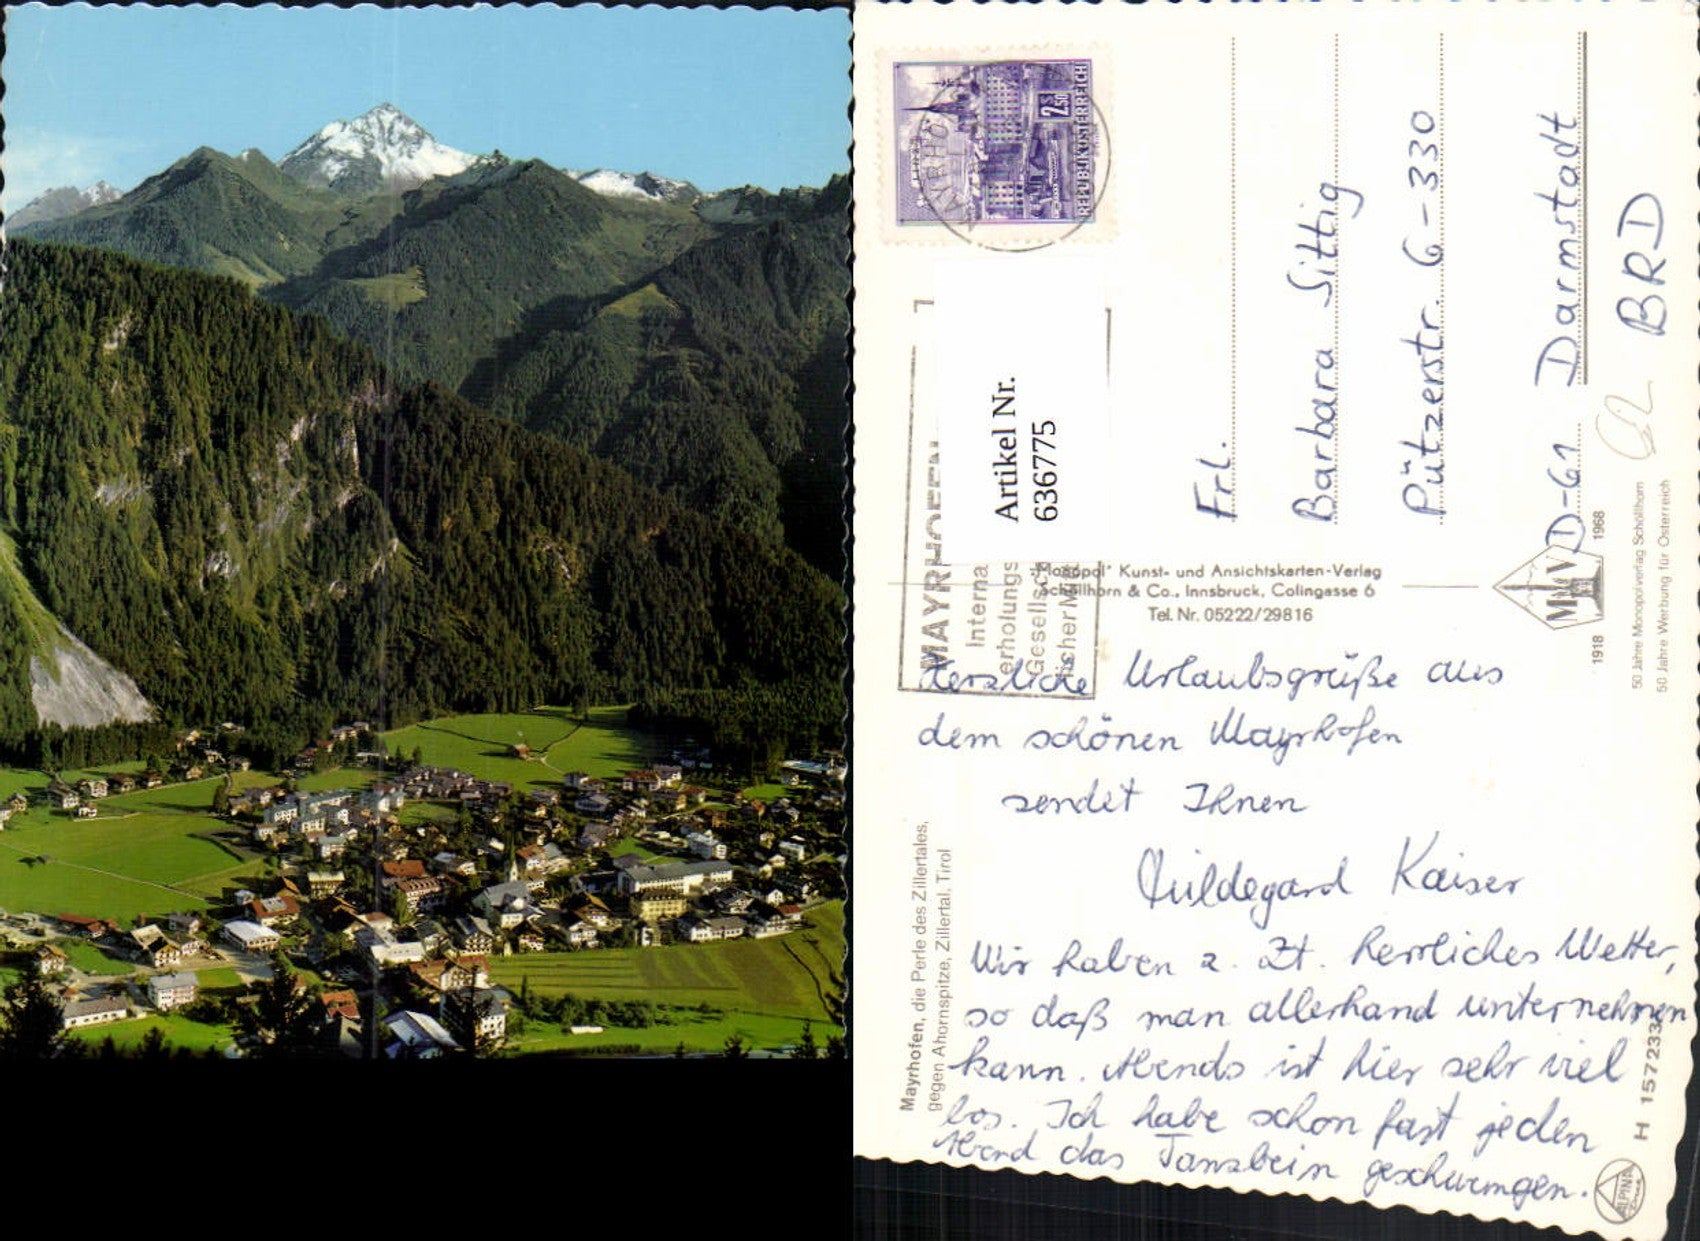 2.50
REPUBLIK ÖSTERREICH
MAYRHO
MAYRHOFEN
Interna
erholungs
Gesellsch
licher Mi
Artikel Nr.
6366775
Frl.
Barbara Sittig
Pützerstr. 6-330
D-61 Darmstadt
BRD
"Monopol" Kunst- und Ansichtskarten-Verlag
Schöllhorn & Co., Innsbruck, Colingasse 6
Tel. Nr. 05222/29816
1918 MKV 1968
50 Jahre Monopolverlag Schöllhorn
50 Jahre Werbung für Österreich
Herzliche Urlaubsgrüße aus
dem schönen Mayrhofen
sendet Ihnen
Hildegard Kaiser
Wir haben z. Zt. herrliches Wetter,
so daß man allerhand unternehmen
kann. Abends ist hier sehr viel
los. Ich habe schon fast jeden
Abend das Tanzbein geschwungen.
Mayrhofen, die Perle des Zillertales,
gegen Ahornspitze, Zillertal, Tirol
H 157233
ALPINA